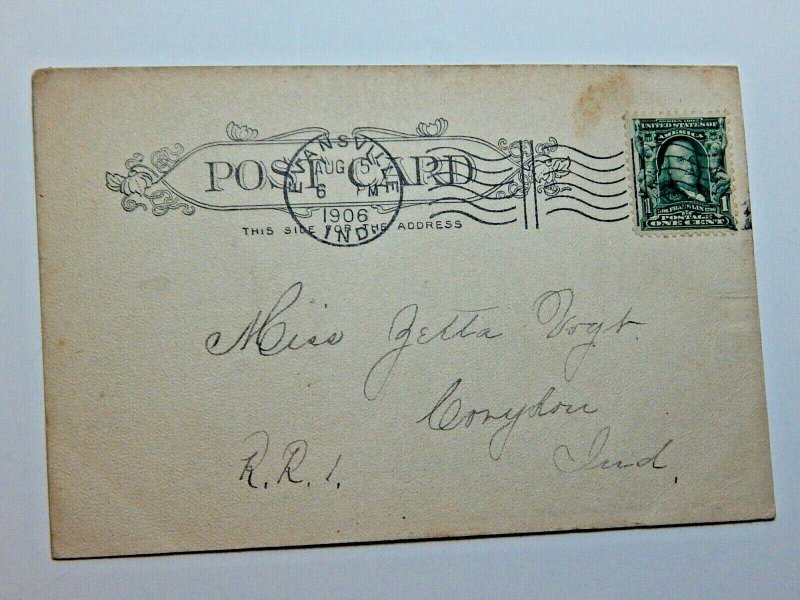 POST CARD
THIS SIDE FOR THE ADDRESS
EVANSVILLE
AUG 5
6 PM
1906
IND.
UNITED STATES OF
AMERICA
1 1
POSTAGE
ONE CENT
Miss Zetta Vogt.
Corydon
R.R.1. Ind.